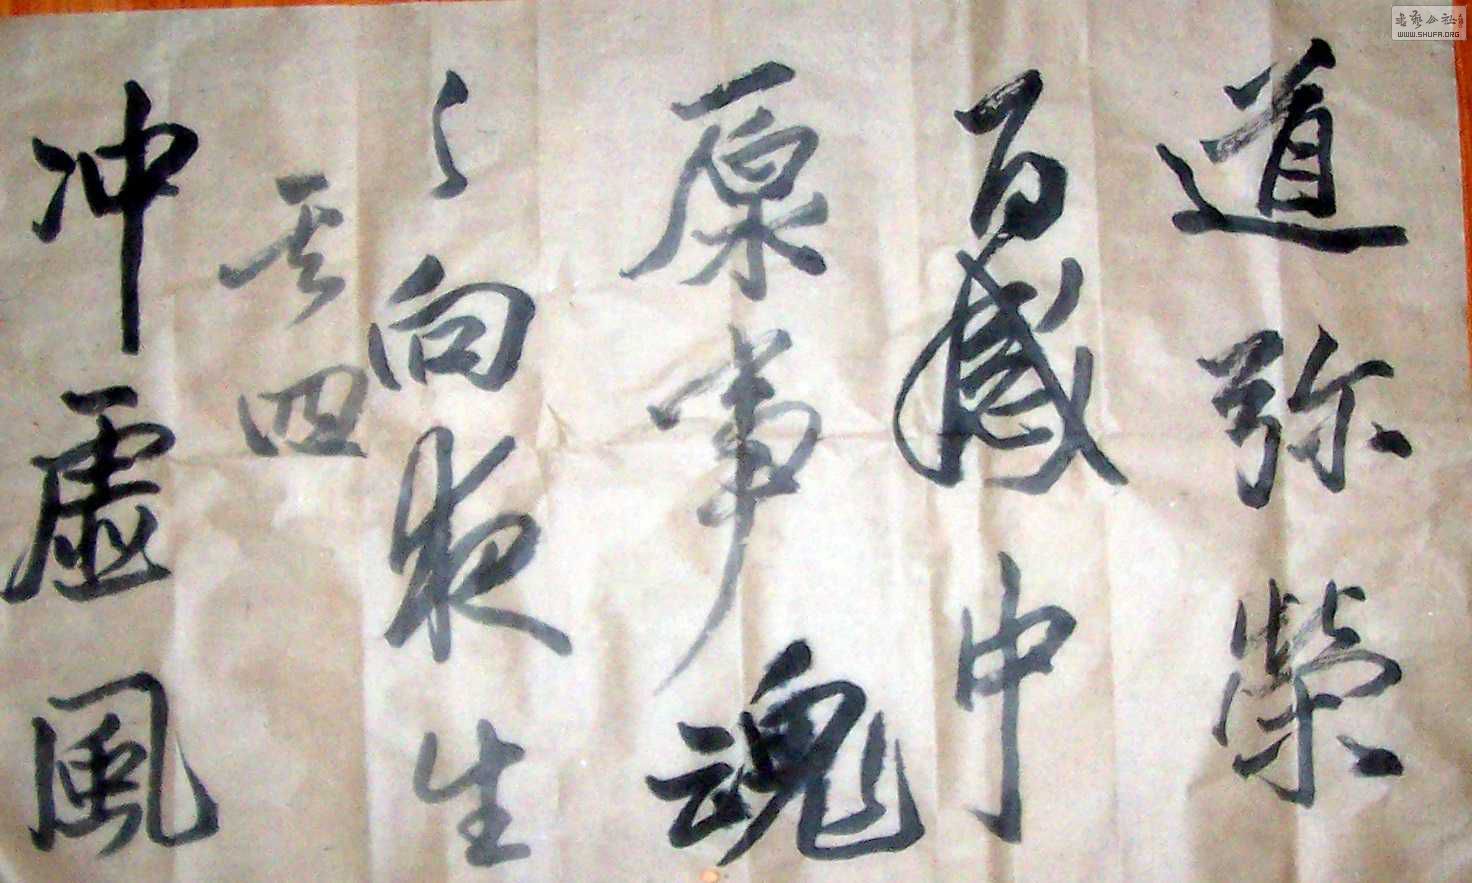 道弥荣
百感中
原事魂
々向夜生
其四
冲虚风
书艺公社
WWW.SHUFA.ORG